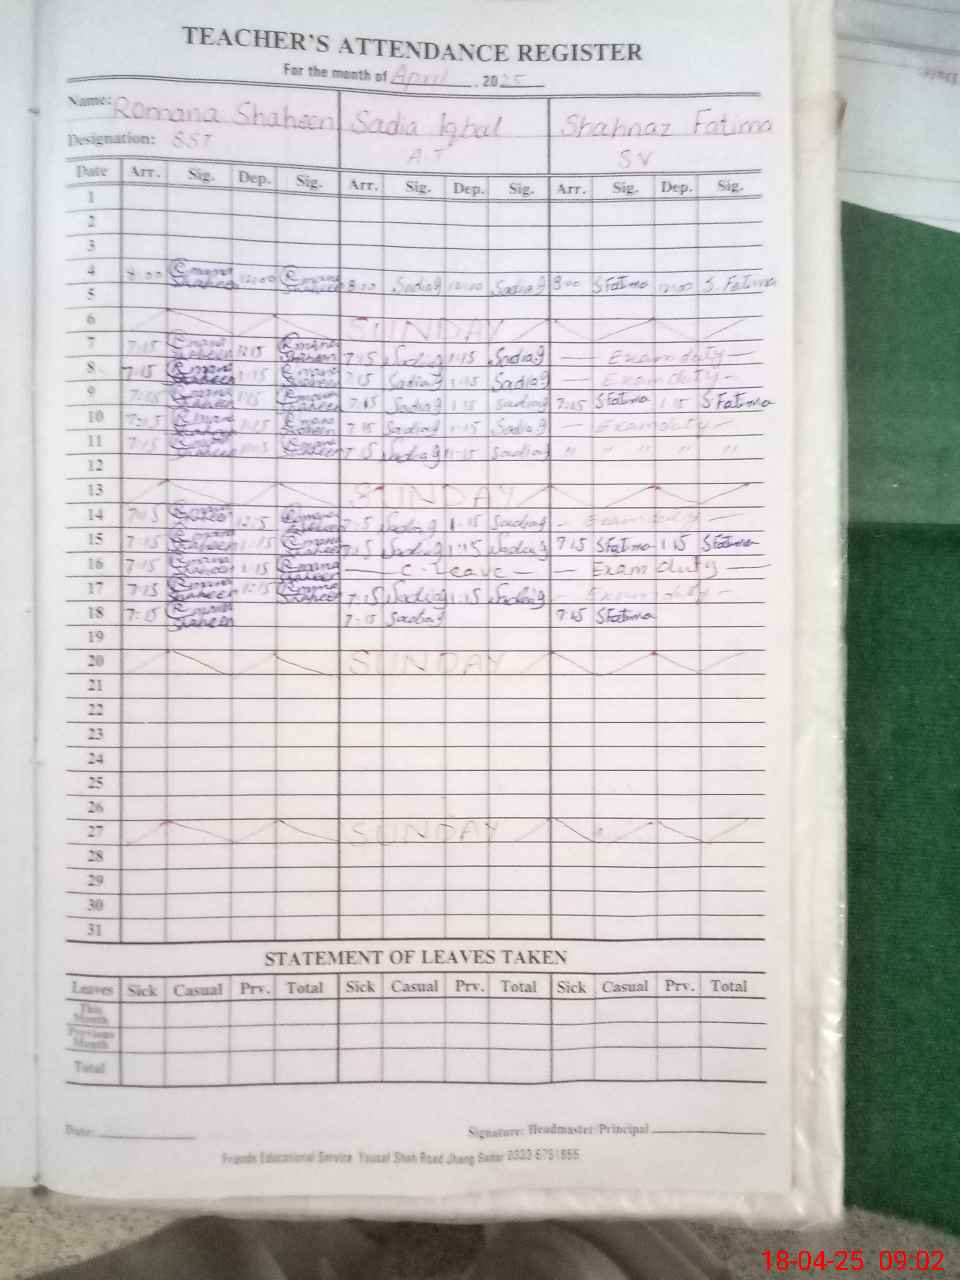 TEACHER'S ATTENDANCE REGISTER
For the month of April, 2025
Name: Romana Shaheen Sadia Iqbal Shahnaz Fatima
Designation: SST AT SV
Date Arr. Sig. Dep. Sig. Arr. Sig. Dep. Sig. Arr. Sig. Dep. Sig.
1
2
3
4 8:00 Romana Shaheen 12:00 Romana Shaheen 8:00 Sadia 12:00 Sadia 8:00 SFatima 12:00 S.Fatima
5
6 SUNDAY
7 7:15 Romana Shaheen 1:15 Romana Shaheen 7:15 Sadia 1:15 Sadia — Exam duty —
8 7:15 Romana Shaheen 1:15 Romana Shaheen 7:15 Sadia 1:15 Sadia — Exam duty —
9 7:15 Romana Shaheen 1:15 Romana Shaheen 7:15 Sadia 1:15 Sadia 7:15 SFatima 1:15 SFatima
10 7:15 Romana Shaheen 1:15 Romana Shaheen 7:15 Sadia 1:15 Sadia — Exam duty —
11 7:15 Romana Shaheen Romana Shaheen 7:15 Sadia 1:15 Sadia " " " "
12
13 SUNDAY
14 7:15 Romana Shaheen Romana Shaheen 7:15 Sadia 1:15 Sadia — Exam duty —
15 7:15 Romana Shaheen 1:15 Romana Shaheen 7:15 Sadia 1:15 Sadia 7:15 SFatima 1:15 SFatima
16 7:15 Romana Shaheen 1:15 Romana Shaheen — C-leave — — Exam duty —
17 7:15 Romana Shaheen 1:15 Romana Shaheen 7:15 Sadia 1:15 Sadia — Exam duty —
18 7:15 Romana Shaheen 7:15 Sadia 7:15 SFatima
19
20 SUNDAY
21
22
23
24
25
26
27 SUNDAY
28
29
30
31
STATEMENT OF LEAVES TAKEN
Leaves Sick Casual Prv. Total Sick Casual Prv. Total Sick Casual Prv. Total
This Month
Previous Month
Total
Date: Signature: Headmaster/Principal
Friends Educational Service Yousaf Shah Road Jhang Sadar
18-04-25 09:02